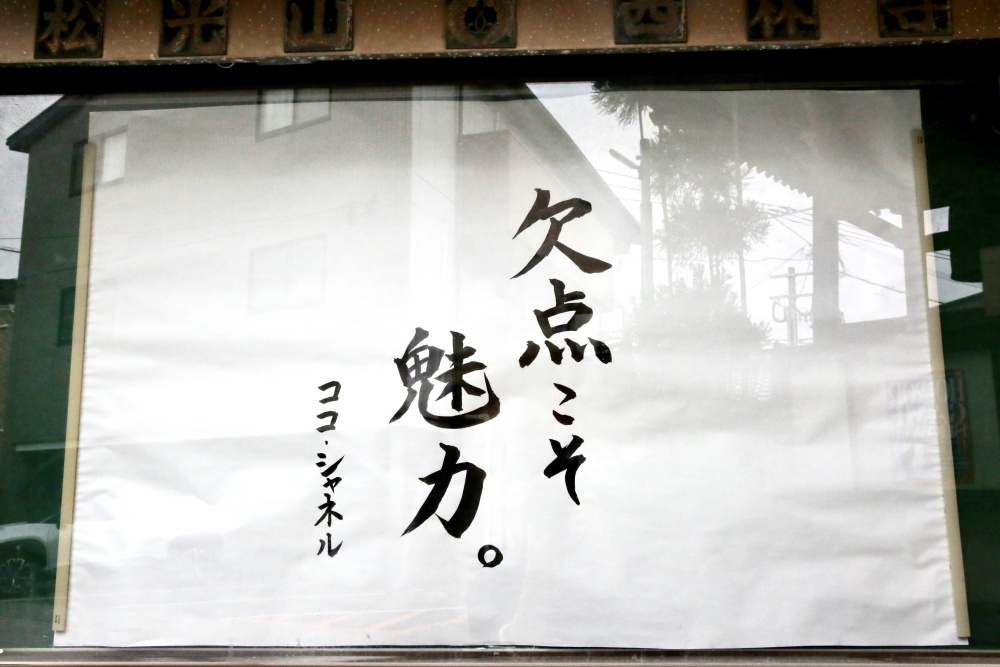 松光山 西林寺
欠点こそ
魅力。
ココ・シャネル